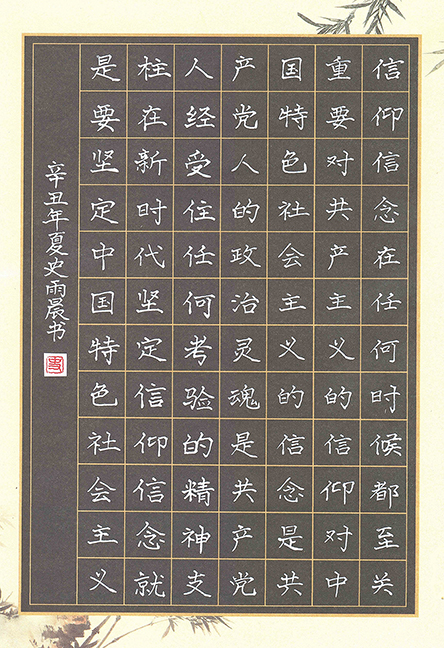 信仰信念在任何时候都至关
重要对共产主义的信仰对中
国特色社会主义的信念是共
产党人的政治灵魂是共产党
人经受住任何考验的精神支
柱在新时代坚定信仰信念就
是要坚定中国特色社会主义
辛丑年夏史雨晨书